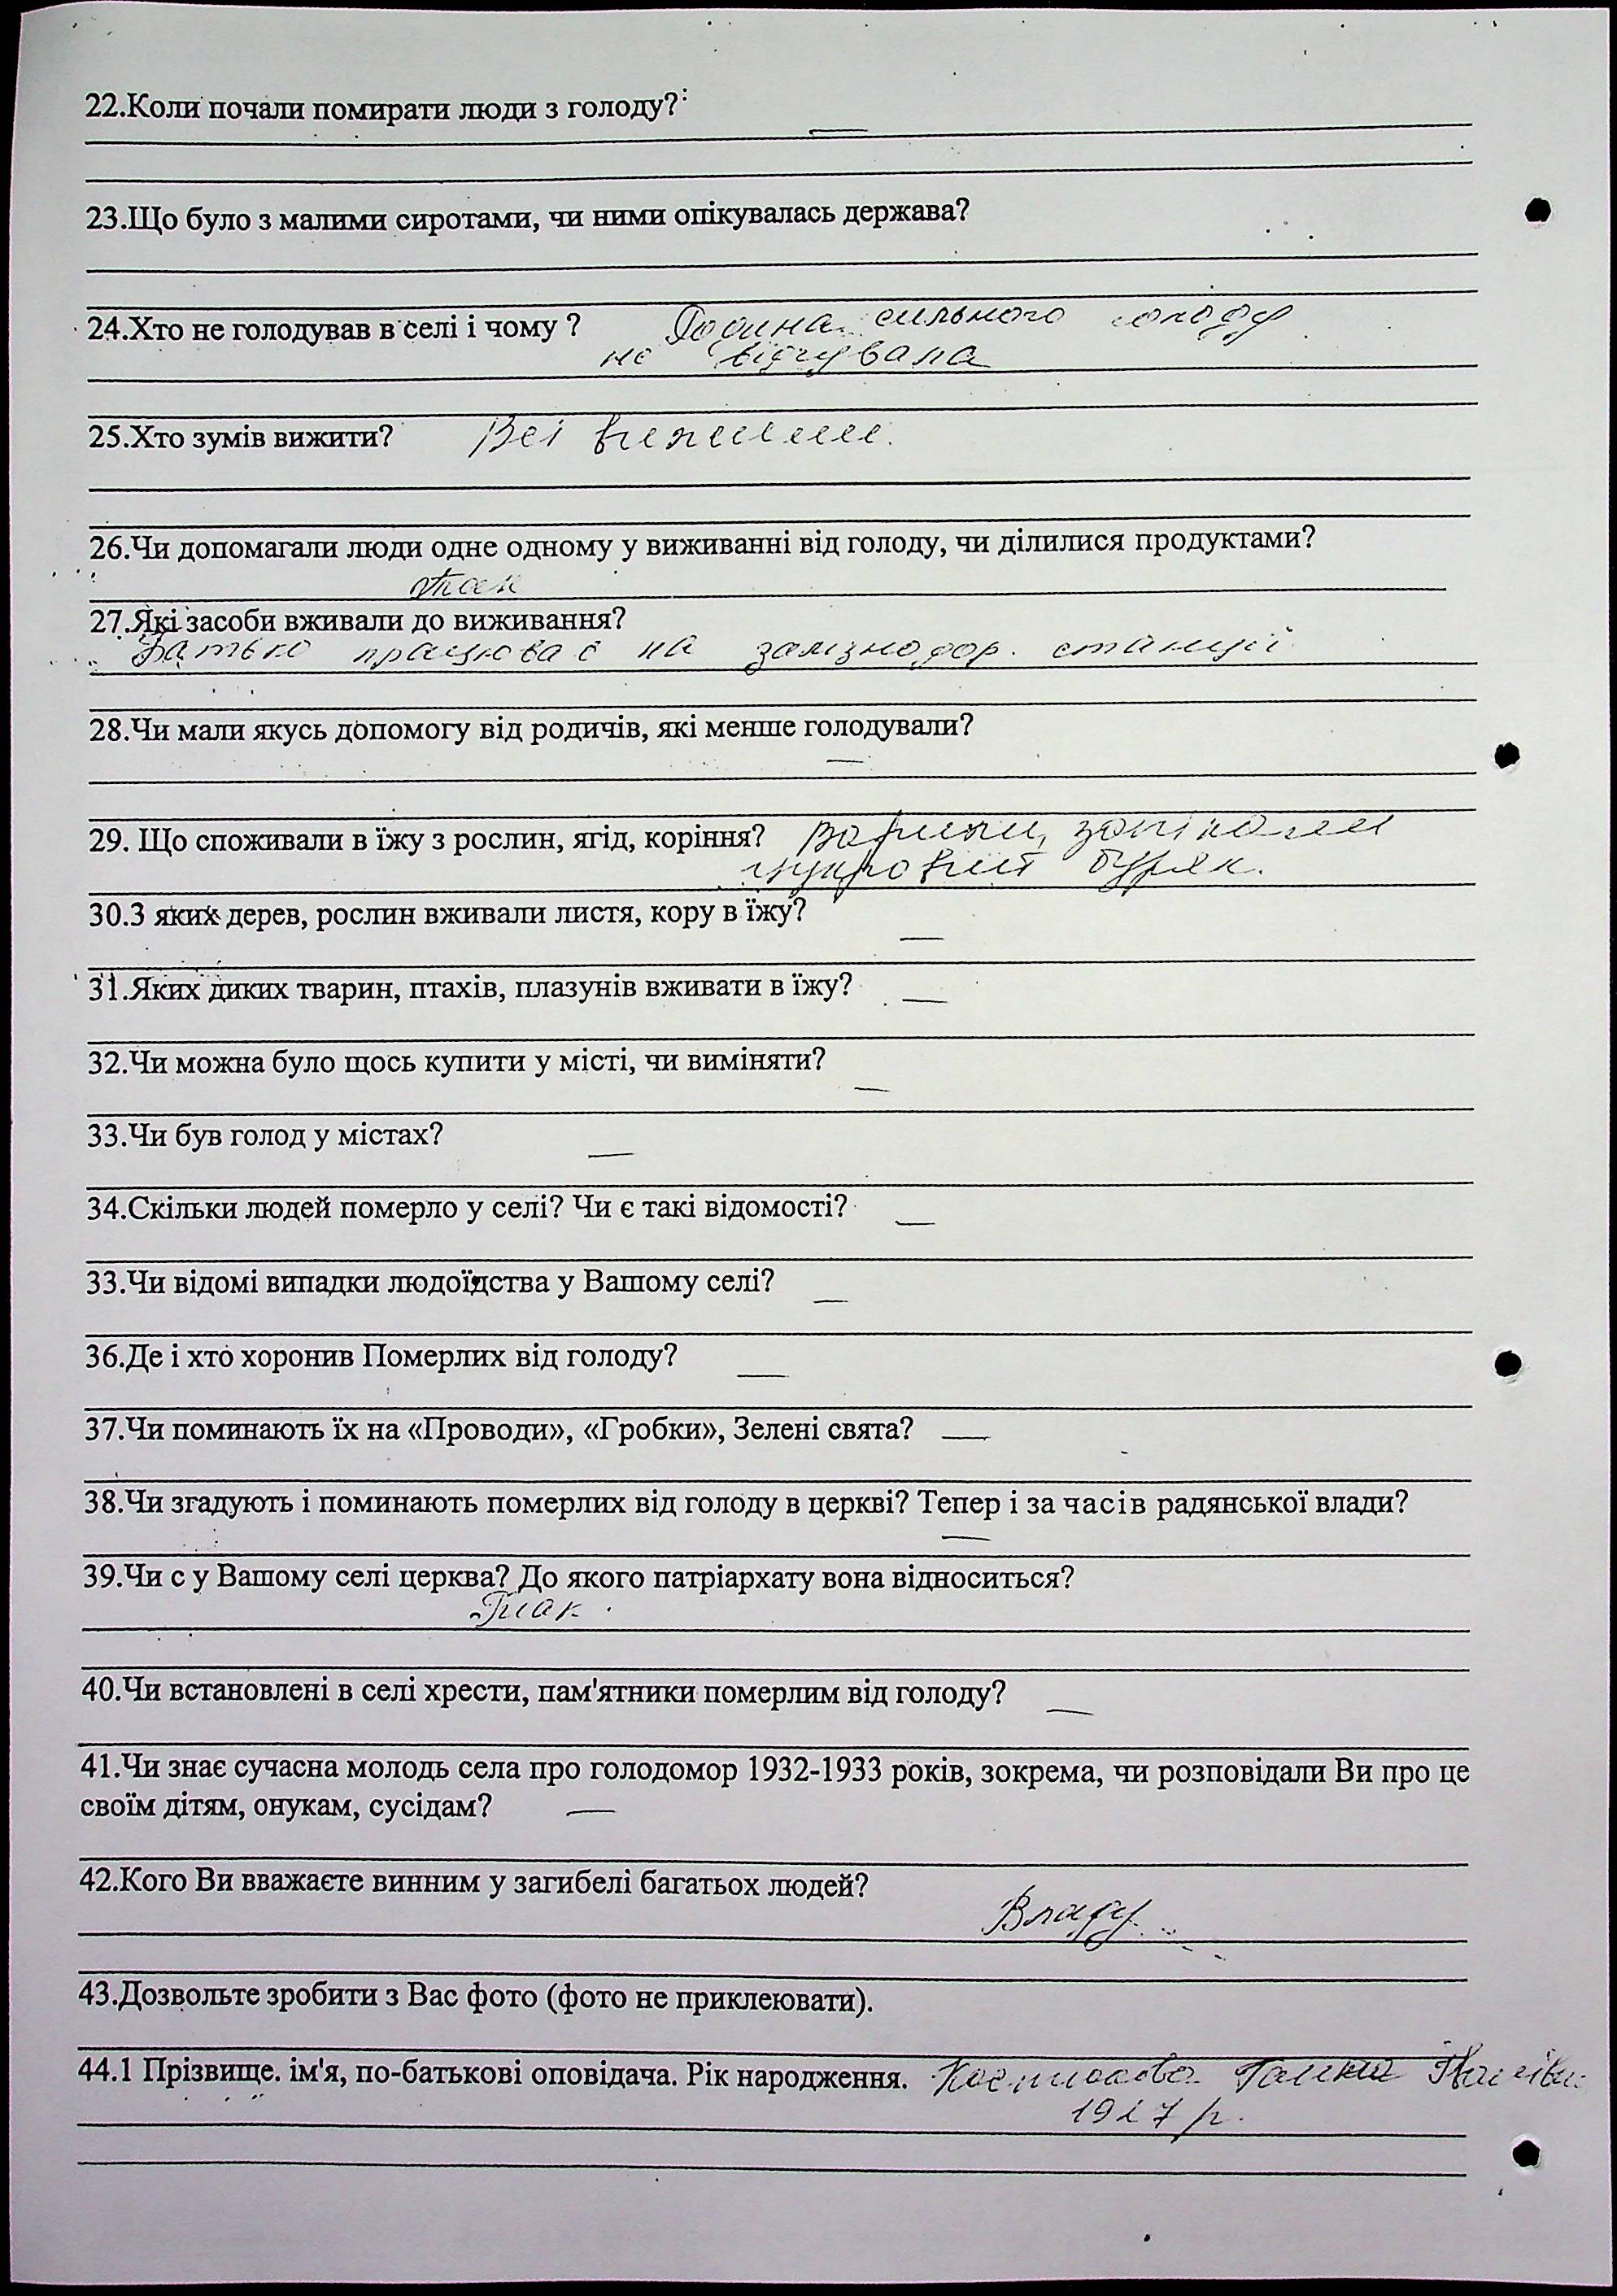 22.Коли почали помирати люди з голоду?
—
23.Що було з малими сиротами, чи ними опікувалась держава?
24.Хто не голодував в селі і чому ? Родина сильного голоду
не відчувала
25.Хто зумів вижити? Всі вижили.
26.Чи допомагали люди одне одному у виживанні від голоду, чи ділилися продуктами?
так
27.Які засоби вживали до виживання?
Батько працював на залізнодор. станції
28.Чи мали якусь допомогу від родичів, які менше голодували?
—
29. Що споживали в їжу з рослин, ягід, коріння? Варили, запікали
цукровий буряк.
30.З яких дерев, рослин вживали листя, кору в їжу?
—
31.Яких диких тварин, птахів, плазунів вживати в їжу? —
32.Чи можна було щось купити у місті, чи виміняти?
—
33.Чи був голод у містах?
—
34.Скільки людей померло у селі? Чи є такі відомості? —
33.Чи відомі випадки людоїдства у Вашому селі?
—
36.Де і хто хоронив Померлих від голоду?
—
37.Чи поминають їх на «Проводи», «Гробки», Зелені свята? —
38.Чи згадують і поминають померлих від голоду в церкві? Тепер і за часів радянської влади?
—
39.Чи с у Вашому селі церква? До якого патріархату вона відноситься?
Так.
40.Чи встановлені в селі хрести, пам'ятники померлим від голоду? —
41.Чи знає сучасна молодь села про голодомор 1932-1933 років, зокрема, чи розповідали Ви про це
своїм дітям, онукам, сусідам? —
42.Кого Ви вважаєте винним у загибелі багатьох людей?
Владу
43.Дозвольте зробити з Вас фото (фото не приклеювати).
44.1 Прізвище. ім'я, по-батькові оповідача. Рік народження. Галина
1927 р.